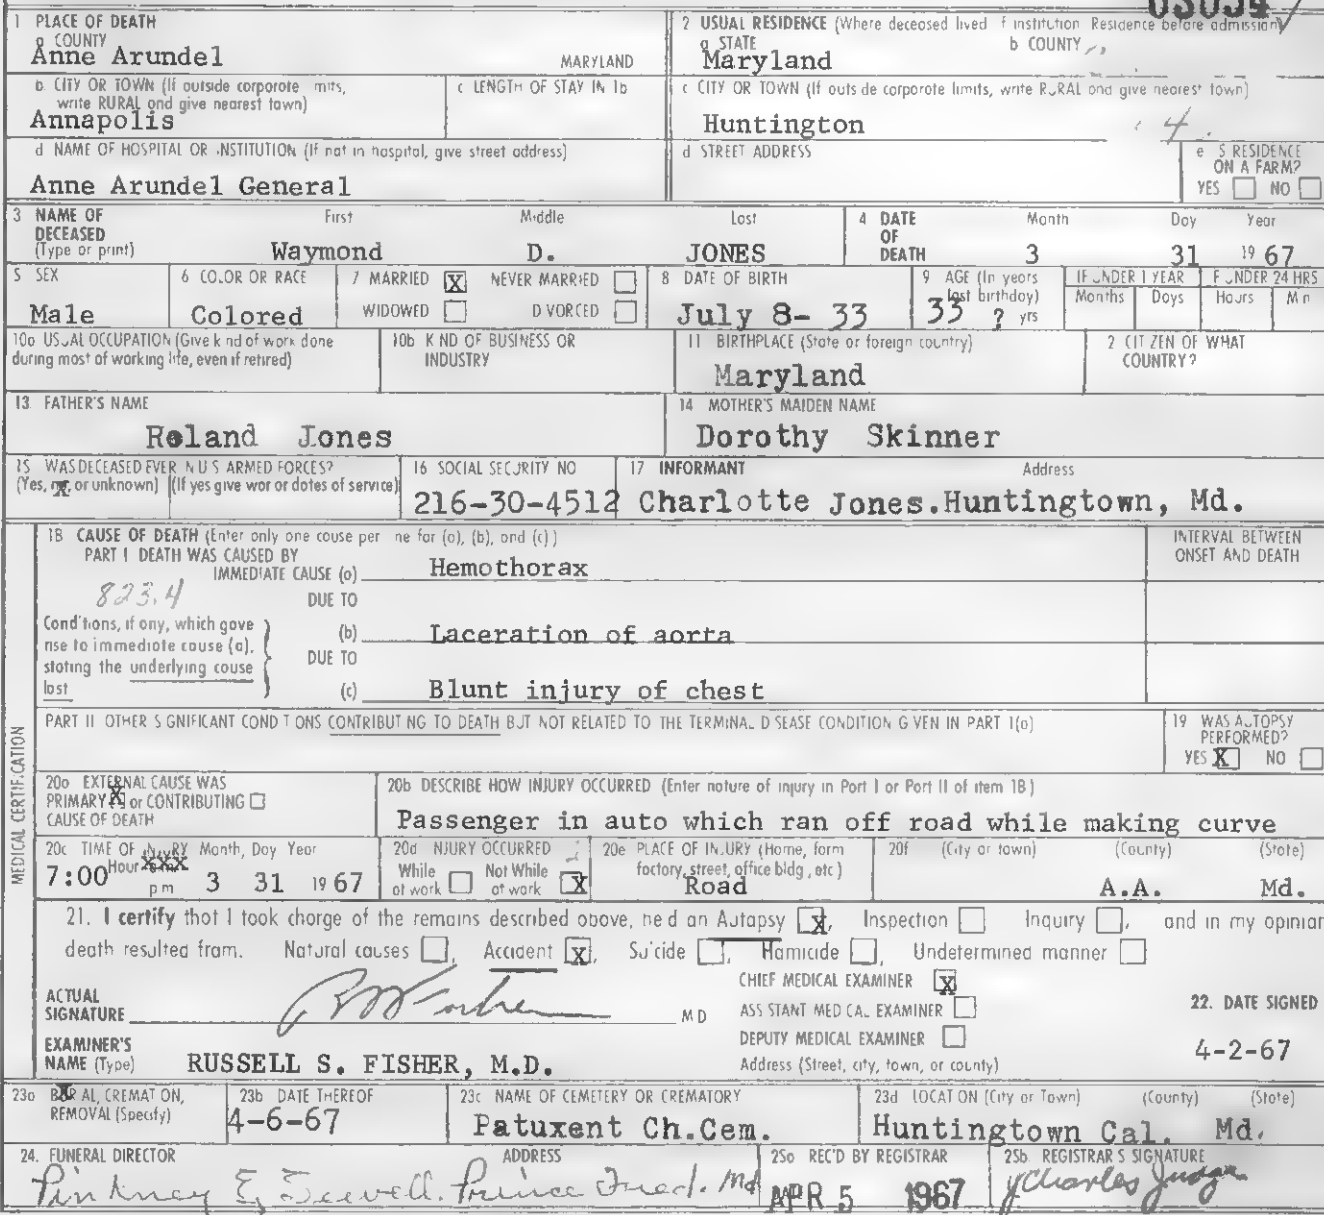 03034
1 PLACE OF DEATH
a COUNTY
Anne Arundel
MARYLAND
2 USUAL RESIDENCE (Where deceased lived f institution Residence before admission)
a STATE
Maryland
b COUNTY
b. CITY OR TOWN (If outside corporate mits, write RURAL and give nearest town)
Annapolis
c LENGTH OF STAY IN 1b
c CITY OR TOWN (If outs de corporate limits, write RURAL and give nearest town)
Huntington
4.
d NAME OF HOSPITAL OR INSTITUTION (If not in hospital, give street address)
Anne Arundel General
d STREET ADDRESS
e S RESIDENCE ON A FARM?
YES NO
3 NAME OF DECEASED
(Type or print)
First Middle Last
Waymond D. JONES
4 DATE OF DEATH
Month Day Year
3 31 19 67
5 SEX
Male
6 COLOR OR RACE
Colored
7 MARRIED X NEVER MARRIED
WIDOWED D VORCED
8 DATE OF BIRTH
July 8- 33
9 AGE (In years last birthday)
33 ? yrs
IF UNDER 1 YEAR
Months Days
F UNDER 24 HRS
Hours M n
10a USUAL OCCUPATION (Give k nd of work done during most of working life, even if retired)
10b K ND OF BUSINESS OR INDUSTRY
11 BIRTHPLACE (State or foreign country)
Maryland
2 CIT ZEN OF WHAT COUNTRY?
13. FATHER'S NAME
Roland Jones
14 MOTHER'S MAIDEN NAME
Dorothy Skinner
15 WAS DECEASED EVER N U S ARMED FORCES?
(Yes, no, or unknown) (If yes give war or dates of service)
16 SOCIAL SECURITY NO
216-30-4512
17 INFORMANT Address
Charlotte Jones.Huntingtown, Md.
MEDICAL CERTIFICATION
18 CAUSE OF DEATH (Enter only one cause per ne for (a), (b), and (c))
PART I DEATH WAS CAUSED BY
IMMEDIATE CAUSE (a) Hemothorax
INTERVAL BETWEEN ONSET AND DEATH
823.4
DUE TO
Conditions, if any, which gave rise to immediate cause (a), stating the underlying cause last
(b) Laceration of aorta
DUE TO
(c) Blunt injury of chest
PART II OTHER S GNIFICANT COND T ONS CONTRIBUT NG TO DEATH BUT NOT RELATED TO THE TERMINAL D SEASE CONDITION G VEN IN PART 1(a)
19 WAS AUTOPSY PERFORMED?
YES X NO
20a EXTERNAL CAUSE WAS
PRIMARY X or CONTRIBUTING
CAUSE OF DEATH
20b DESCRIBE HOW INJURY OCCURRED (Enter nature of injury in Part I or Part II of item 18)
Passenger in auto which ran off road while making curve
20c TIME OF INJURY Month, Day Year
7:00 Hour xxx p m 3 31 19 67
20d NJURY OCCURRED
While at work Not While at work X
20e PLACE OF INJURY (Home, farm factory, street, office bldg, etc)
Road
20f (City or town) (County) (State)
A.A. Md.
21. I certify that I took charge of the remains described above, he d an Autopsy X, Inspection , Inquiry , and in my opinion
death resulted from. Natural causes , Accident X, Su cide , Homicide , Undetermined manner
ACTUAL SIGNATURE
M D
CHIEF MEDICAL EXAMINER X
ASS STANT MED CAL EXAMINER
DEPUTY MEDICAL EXAMINER
Address (Street, city, town, or county)
22. DATE SIGNED
4-2-67
EXAMINER'S NAME (Type) RUSSELL S. FISHER, M.D.
23a BURIAL, CREMAT ON, REMOVAL (Specify)
23b DATE THEREOF
4-6-67
23c NAME OF CEMETERY OR CREMATORY
Patuxent Ch.Cem.
23d LOCAT ON (City or Town) (County) (State)
Huntingtown Cal. Md.
24. FUNERAL DIRECTOR ADDRESS
Pinkney E. Sewell. Prince Fred. Md
25a REC'D BY REGISTRAR
APR 5 1967
25b REGISTRAR S SIGNATURE
Charles Judge